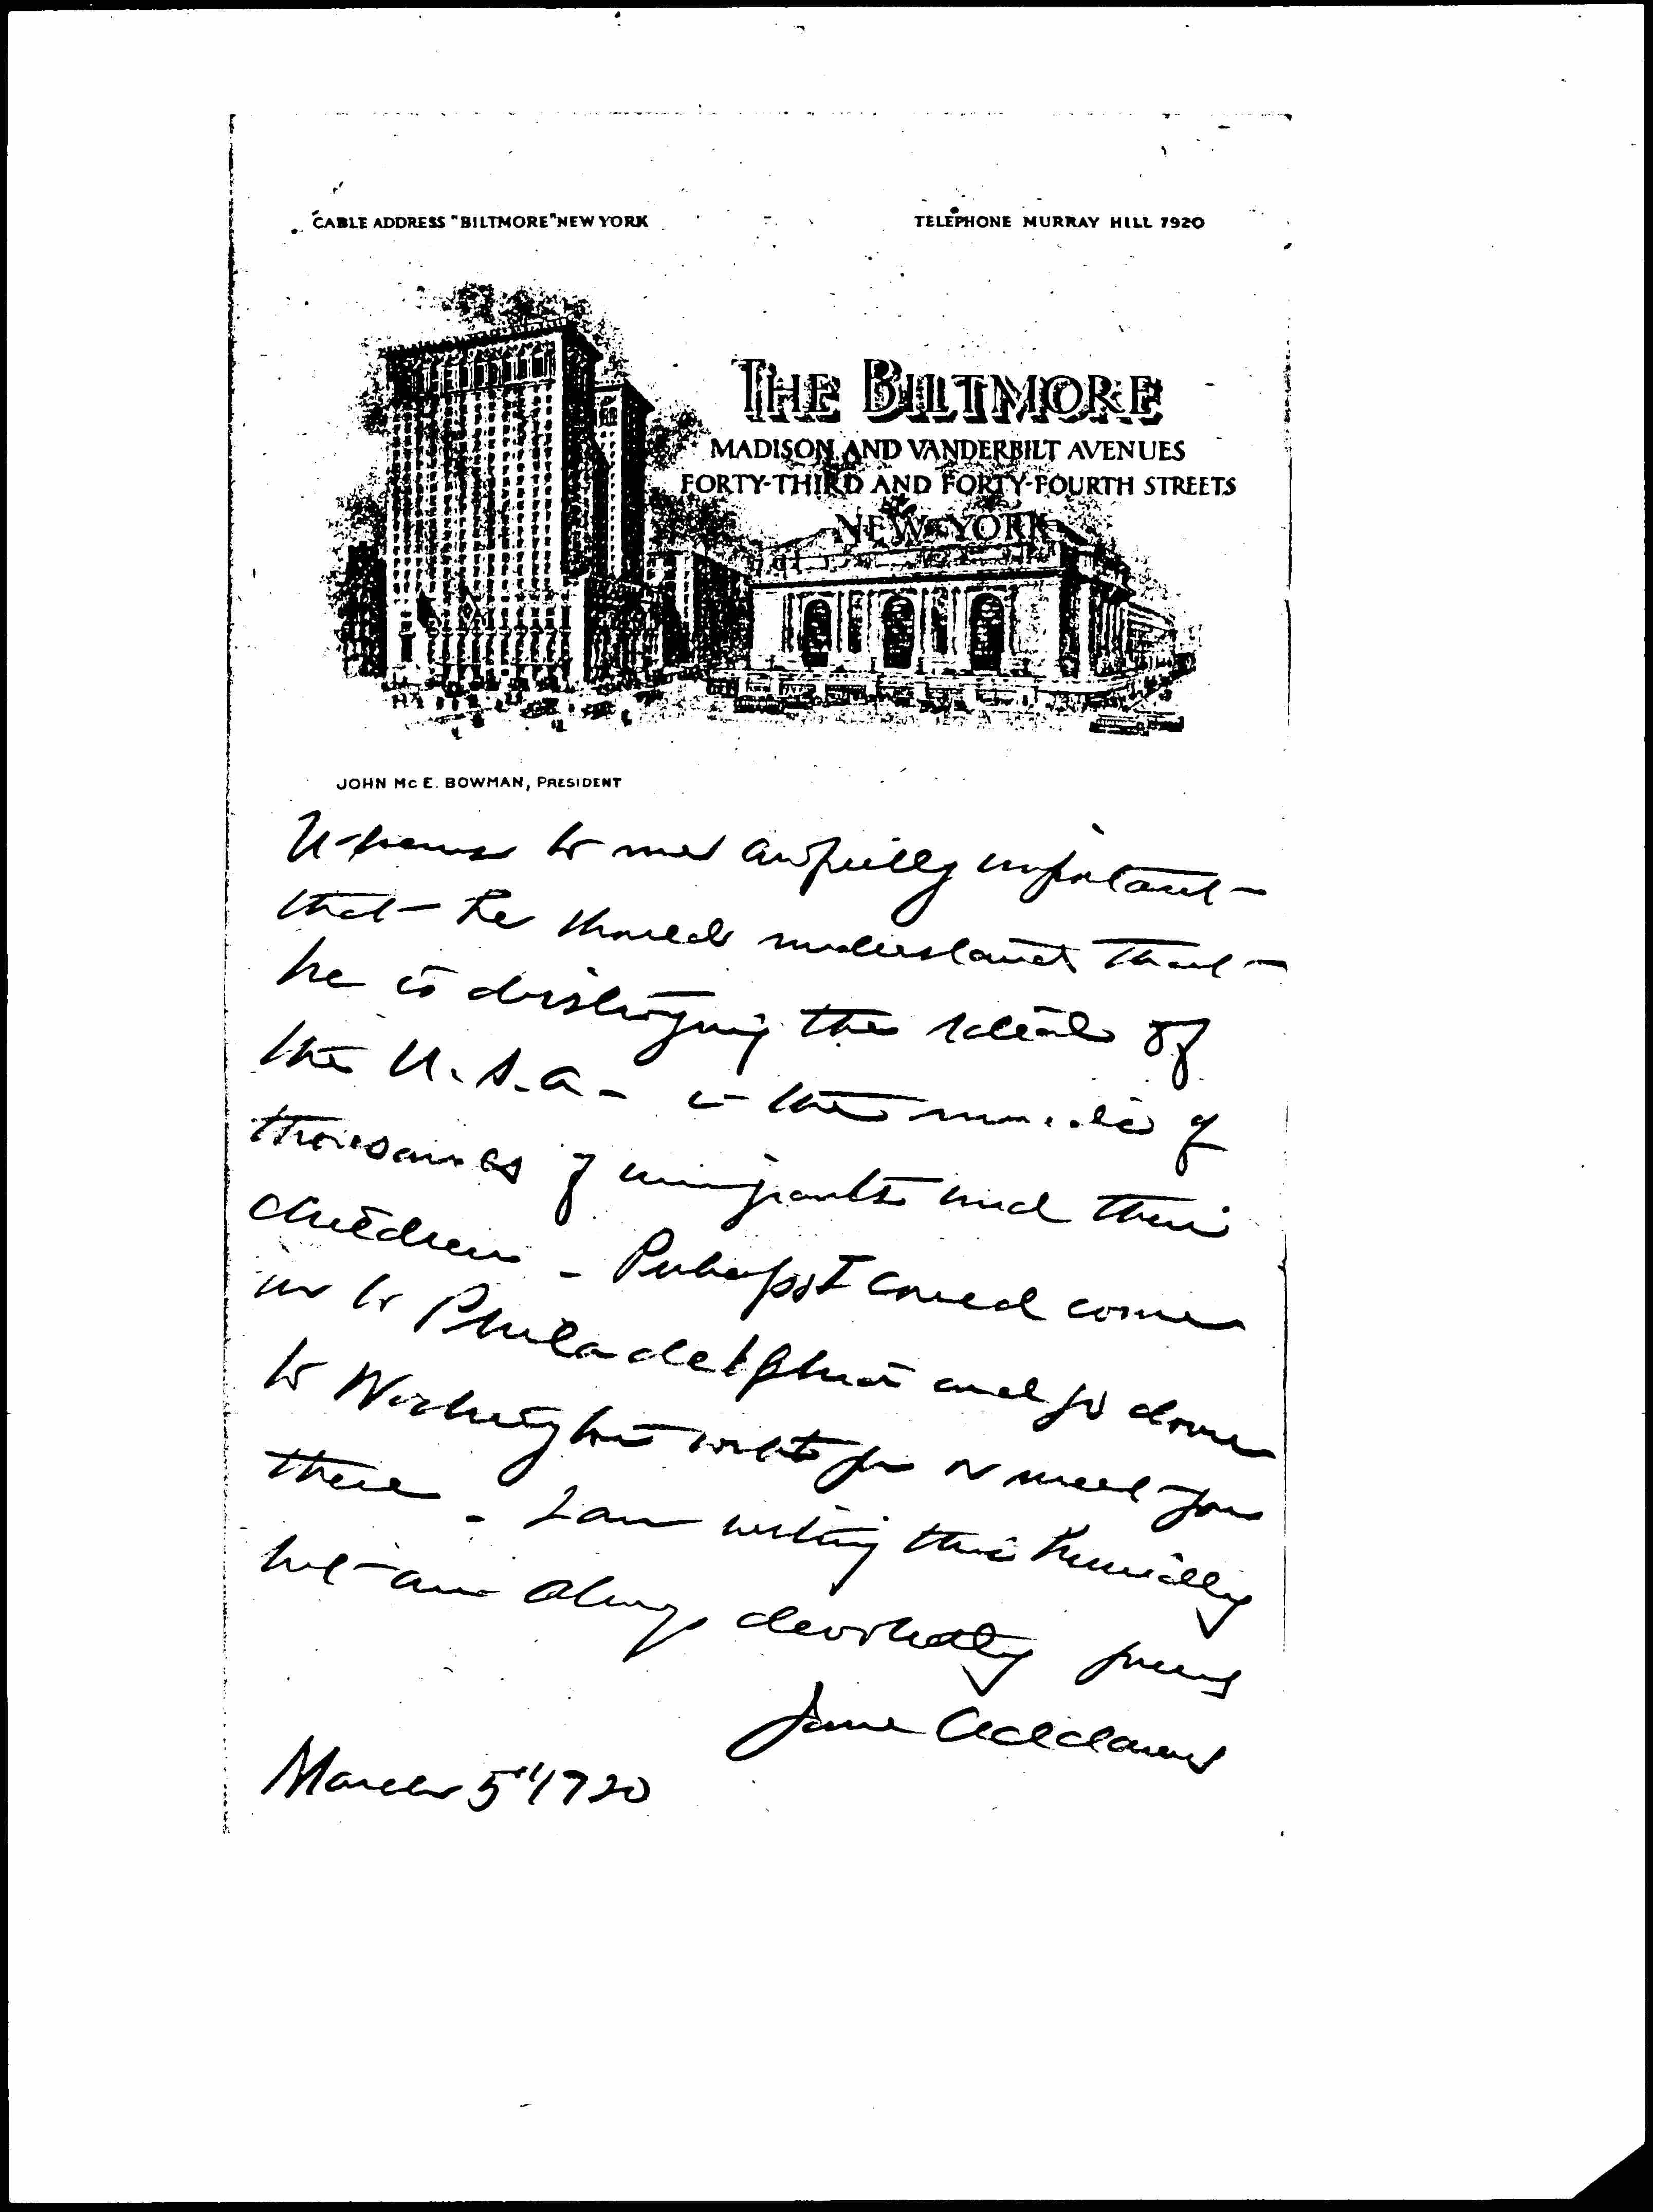 CABLE ADDRESS "BILTMORE" NEW YORK
TELEPHONE MURRAY HILL 7920
THE BILTMORE
MADISON AND VANDERBILT AVENUES
FORTY-THIRD AND FORTY-FOURTH STREETS
NEW YORK
JOHN Mc E. BOWMAN, PRESIDENT
It seems to me awfully important
that he should understand that
he is destroying the ideal of
the U.S.A. in the minds of
thousands of immigrants and their
children - Perhaps I could come
on to Philadelphia and go down
to Washington with you or meet you
there - I am writing this hurriedly
but am always devotedly yours
Jane Addams
March 5" 1920